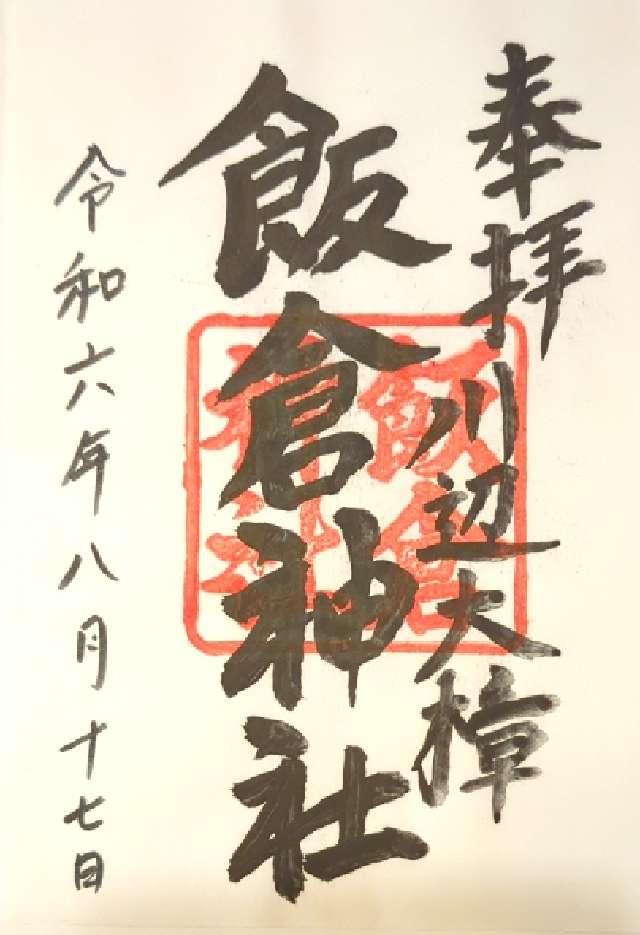 奉拝
川辺大樟
飯倉神社
飯倉
神社
令和六年八月十七日